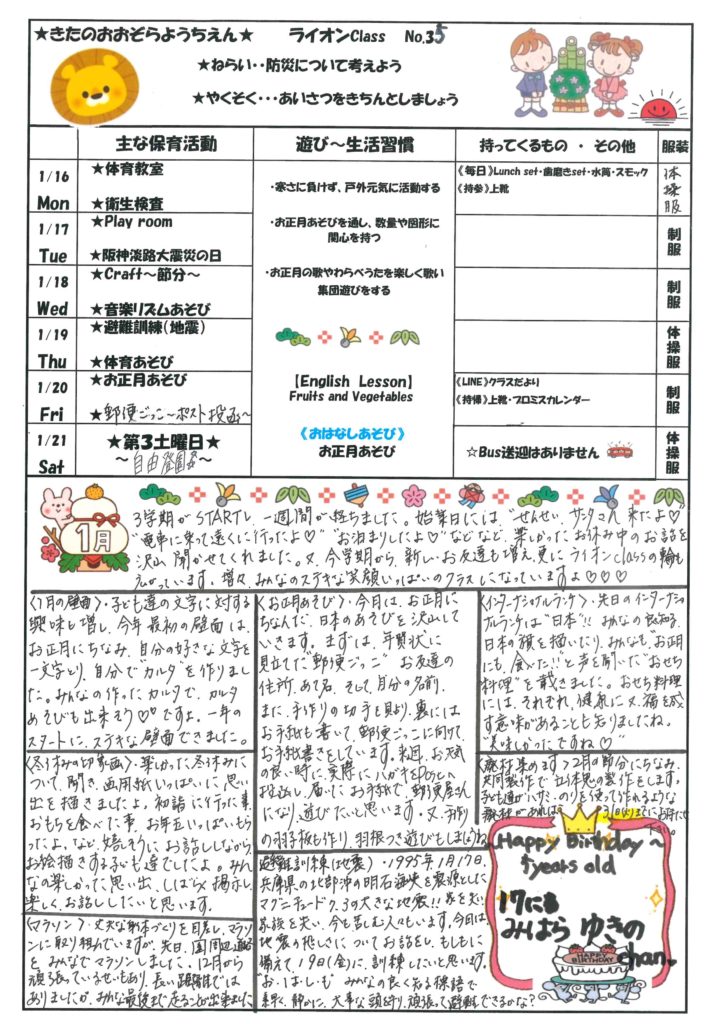 ★きたのおおぞらようちえん★ ライオンClass No.35
★ねらい・・防災について考えよう
★やくそく・・・あいさつをきちんとしましょう
主な保育活動 遊び～生活習慣 持ってくるもの ・ その他 服装
1/16 Mon
★体育教室
★衛生検査
《毎日》Lunch set・歯磨きset・水筒・スモック
《持参》上靴
体操服
1/17 Tue
★Play room
★阪神淡路大震災の日
制服
1/18 Wed
★Craft～節分～
★音楽リズムあそび
制服
1/19 Thu
★避難訓練(地震)
★体育あそび
体操服
1/20 Fri
★お正月あそび
★郵便ごっこ～ポスト投函～
《LINE》クラスだより
《持帰》上靴・プロミスカレンダー
制服
1/21 Sat
★第3土曜日★
～自由登園～
☆Bus送迎はありません
体操服
・寒さに負けず、戸外元気に活動する
・お正月あそびを通し、数量や図形に
関心を持つ
・お正月の歌やわらべうたを楽しく歌い
集団遊びをする
【English Lesson】
Fruits and Vegetables
《おはなしあそび》
お正月あそび
1月
3学期がSTARTし、一週間が経ちました。始業日には、"せんせい、サンタさん来たよ♡"
"電車に乗って遠くに行ったよ♡" "お泊まりしたよ♡"などなど、楽しかったお休み中のお話を
沢山聞かせてくれました。又、今学期から、新しいお友達も増え、更にライオンclassの輪も
広がっています。増々、みんなのステキな笑顔いっぱいのクラスになっていますよ♡♡♡
〈1月の壁面〉・子ども達の文字に対する
興味も増し、今年最初の壁面は、
お正月にちなみ、自分の好きな文字を
一文字とり、自分で"カルタ"を作りまし
た。みんなの作ったカルタで、カルタ
あそびも出来そう♡♡ですよ。一年の
スタートに、ステキな壁面できました。
〈冬休みの印象画〉・楽しかった冬休みに
ついて、聞き、画用紙いっぱいに思い
出を描きましたよ。初詣に行った事、
おもちを食べた事、お年玉いっぱいもら
ったよ。など、嬉しそうにお話ししながら、
お絵描きする子ども達でしたよ。みん
なの楽しかった思い出、しばらく掲示し、
楽しく、お話ししたいと思います。
〈マラソン〉・丈夫な身体づくりを目差し、マラソ
ンに取り組んでいますが、先日、園周辺道路
を、みんなでマラソンしました。12月から
頑張っているせいもあり、長い距離では
ありましたが、みんな最後まで走ることが出来ました
〈お正月あそび〉・今月は、お正月に
ちなんだ、日本のあそびを沢山して
いきます。まずは、年賀状に
見立てた"郵便ごっこ" お友達の
住所、あて名、そして、自分の名前、
また、手作りの切手を貼り、裏には
お手紙も書いて、郵便ごっこに向けて、
お手紙書きをしています。来週、お天気
の良い時に、実際に、ハガキをポストへ
投函し、届いたお手紙で、郵便屋さん
になり、遊びたいと思います。又、手作り
の羽子板も作り、羽根つき遊びもしましょうね
〈避難訓練(地震)〉・1995年1月17日、
兵庫県の北部沖の明石海峡を震源とした
マグニチュード7.3の大きな地震!! 家を失い
家族を失い、今も苦しむ人々もいます。今月は、
地震の恐しさについてお話をし、もしもに
備えて、19日(金)に、訓練したいと思います。
"お・は・し・も" みんなの良く知る標語で
素早く、静かに、大事な頭を守り、頑張って避難できるかな?
〈インターナショナルランチ〉・先日のインターナショ
ナルランチは"日本"!! みんなの良く知る、
日本の旗を描いたり、みんなも"お正月
にも、食べた!!"と声を聞いた"おせち
料理"を戴きました。おせち料理
には、それぞれ、健康に、又、福を残
す意味があることも知りましたね。
美味しかったですね♡
〈廃材集めます〉2月の節分にちなみ、
共同製作で、お鬼の製作をします。
子ども達がハサミ・のりを使って作れるような
Happy Birthday～
5years old
17にち
みはら ゆきの
chan
HAPPY BIRTHDAY